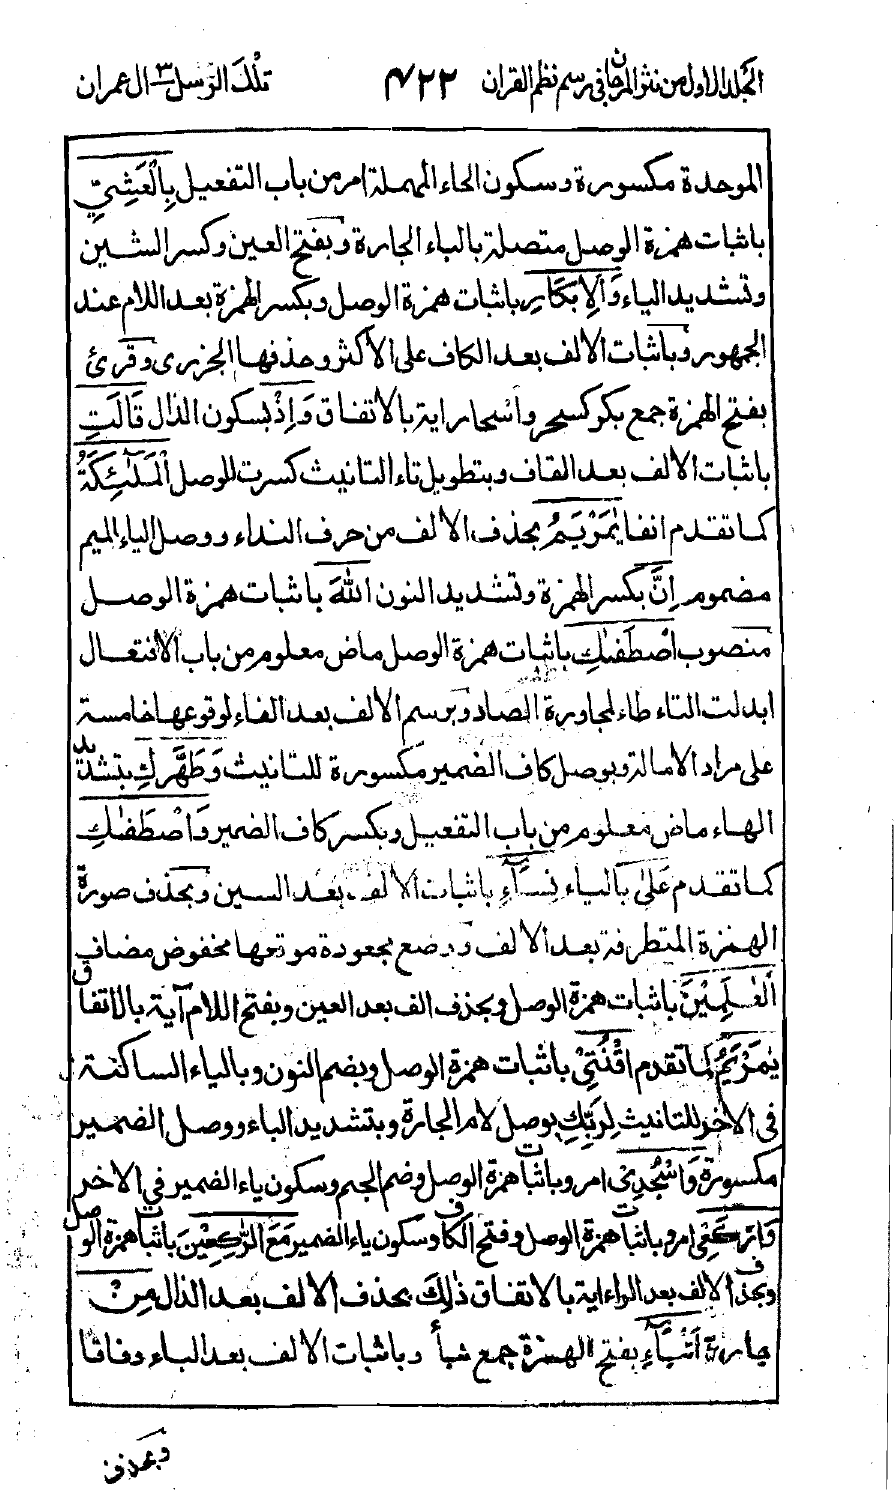 الجلد الاول من نثر المرجان في رسم نظم القران ٤٢٢ تلك الرسل ٣ ال عمران
الموحدة مكسورة وسكون الحاء المهملة امر من باب التفعيل بِالْعَشِيِّ
باثبات همزة الوصل متصلة بالباء الجارة وبفتح العين وكسر الشين
وتشديد الياء وَالْاِبْكَارِ باثبات همزة الوصل وبكسر الهمزة بعد اللام عند
الجمهور وباثبات الالف بعد الكاف على الأكثر وحذفها الجزرى وقرئ
بفتح الهمزة جمع بكر كسحر وأسحار اية بالاتفاق وَاِذْ بسكون الذال قَالَتِ
باثبات الالف بعد القاف وبتطويل تاء التانيث كسرت للوصل الْمَلٰٓئِكَةُ
كما تقدم انفا يٰمَرْيَمُ بحذف الالف من حرف النداء ووصل الياء بالميم
مضموم اِنَّ بكسر الهمزة وتشديد النون اللّٰهَ باثبات همزة الوصل
منصوب اصْطَفٰىكِ باثبات همزة الوصل ماض معلوم من باب الافتعال
ابدلت التاء طاء لمجاورة الصاد وبرسم الالف بعد الفاء لوقوعها خامسة
على مراد الامالة وبوصل كاف الضمير مكسورة للتانيث وَطَهَّرَكِ بتشديد
الهاء ماض معلوم من باب التفعيل وبكسر كاف الضمير وَاصْطَفٰىكِ
كما تقدم عَلٰى بالياء نِسَآءِ باثبات الالف بعد السين وبحذف صورة
الهمزة المتطرفة بعد الالف ووضع مجعودة موقعها مخفوض مضاف
الْعٰلَمِيْنَ باثبات همزة الوصل وبحذف الف بعد العين وبفتح اللام آية بالاتفاق
يٰمَرْيَمُ كما تقدم اقْنُتِيْ باثبات همزة الوصل وبضم النون وبالياء الساكنة
في الاخر للتانيث لِرَبِّكِ بوصل لام الجارة وبتشديد الباء ووصل الضمير
مكسورة وَاسْجُدِىْ امر وباثبات همزة الوصل وضم الجيم وسكون ياء الضمير في الاخر
وَارْكَعِىْ امر وباثبات همزة الوصل وفتح الكاف وسكون ياء الضمير مَعَ الرّٰكِعِيْنَ باثبات همزة الوصل
وبحذف الالف بعد الراء اية بالاتفاق ذٰلِكَ بحذف الالف بعد الذال مِنْ
جارة اَنْبَآءِ بفتح الهمزة جمع نبأ وباثبات الالف بعد الباء وفاقا
وبحذف